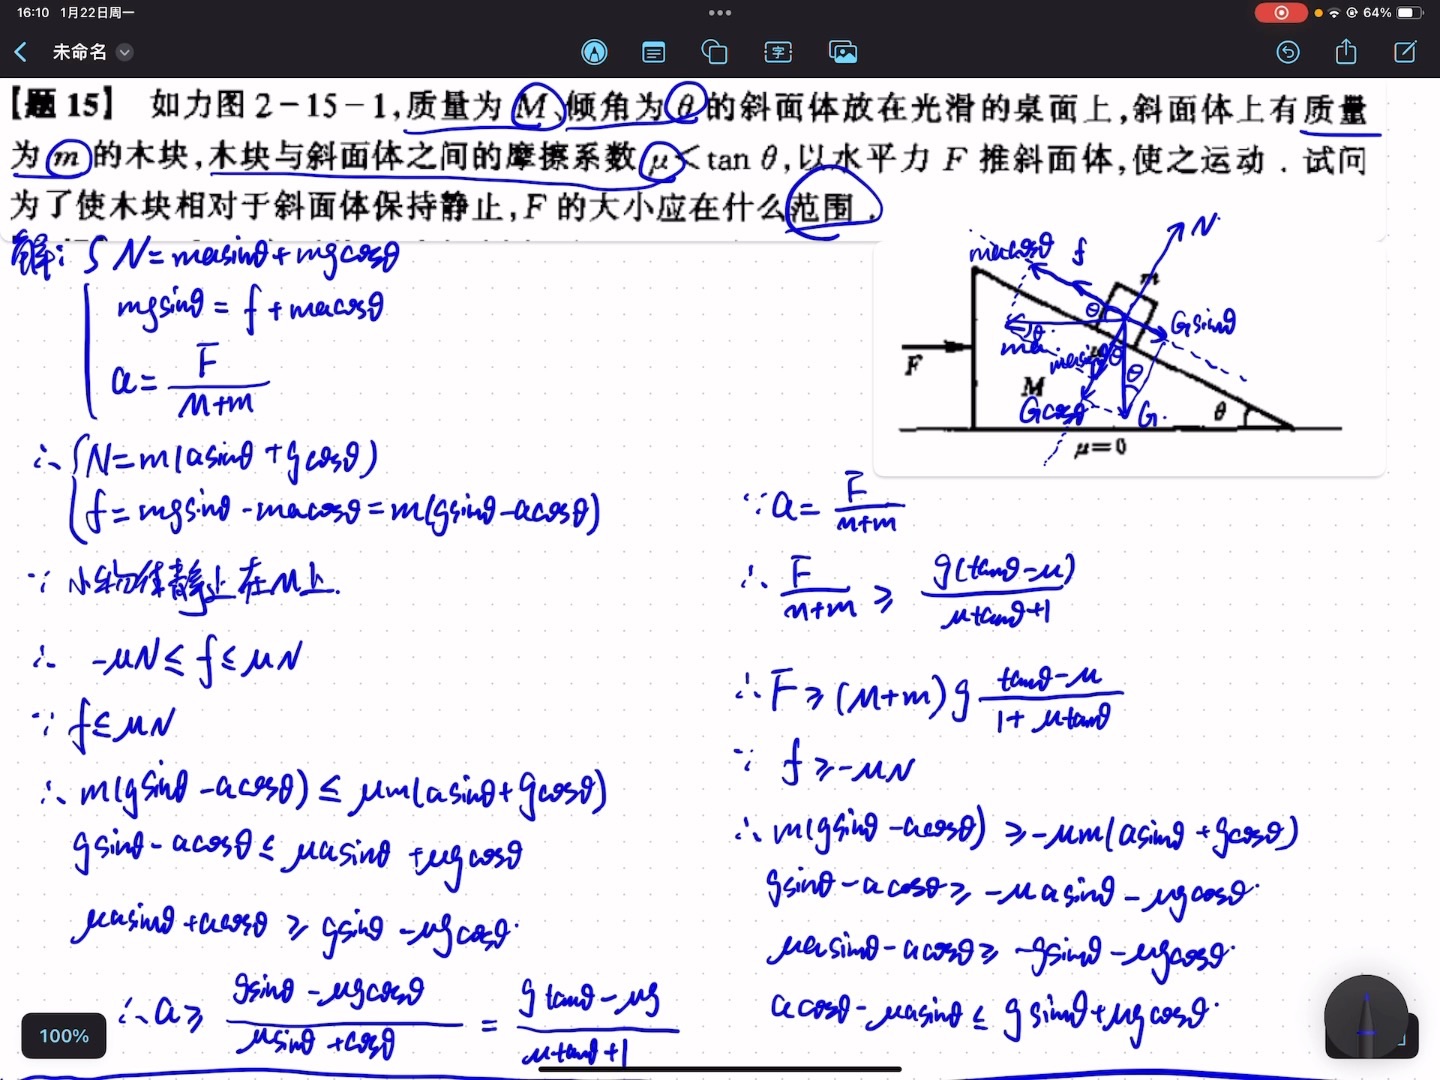 16:10 1月22日周一
64%
未命名
【题 15】 如力图 2-15-1,质量为 M、倾角为 θ 的斜面体放在光滑的桌面上,斜面体上有质量
为 m 的木块,木块与斜面体之间的摩擦系数 μ<tan θ,以水平力 F 推斜面体,使之运动.试问
为了使木块相对于斜面体保持静止,F 的大小应在什么范围.
解: { N=masinθ+mgcosθ
mgsinθ = f + macosθ
a = F/(M+m)
∴ { N=m(asinθ+gcosθ)
f = mgsinθ-macosθ=m(gsinθ-acosθ)
∵ 小物体静止在M上.
∴ -μN ≤ f ≤ μN
∵ f ≤ μN
∴ m(gsinθ-acosθ) ≤ μm(asinθ+gcosθ)
gsinθ-acosθ ≤ μasinθ+μgcosθ
μasinθ+acosθ ≥ gsinθ-μgcosθ
∴ a ≥ (gsinθ-μgcosθ)/(μsinθ+cosθ) = (gtanθ-μg)/(μtanθ+1)
N
macosθ
f
m
θ
Gsinθ
ma
θ
masinθ
θ
θ
F
M
Gcosθ
G
θ
μ=0
∵ a = F/(M+m)
∴ F/(M+m) ≥ g(tanθ-μ)/(μtanθ+1)
∴ F ≥ (M+m)g (tanθ-μ)/(1+μtanθ)
∵ f ≥ -μN
∴ m(gsinθ-acosθ) ≥ -μm(asinθ+gcosθ)
gsinθ-acosθ ≥ -μasinθ-μgcosθ
μasinθ-acosθ ≥ -gsinθ-μgcosθ
acosθ-μasinθ ≤ gsinθ+μgcosθ
100%